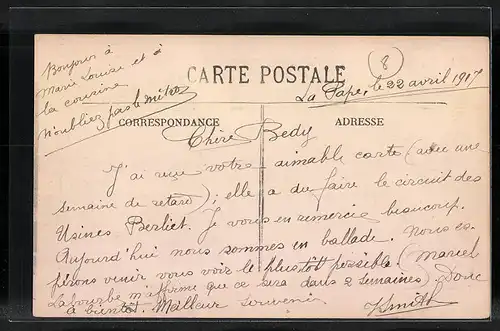 Bonjour à
Marie Louise et à
la cousine
N'oubliez pas le métro
(8)
CARTE POSTALE
La Pape, le 22 avril 1917
CORRESPONDANCE
ADRESSE
Chère Bedy
J'ai reçu votre aimable carte (avec une
semaine de retard); elle a du faire le circuit des
Usines Berliet. Je vous en remercie beaucoup.
Aujourd'hui nous sommes en ballade. Nous es-
pérons venir vous voir le plustôt possible (Marcel
Labourbe m'affirme que ce sera dans 2 semaines) Donc
à bientôt. Meilleur souvenir